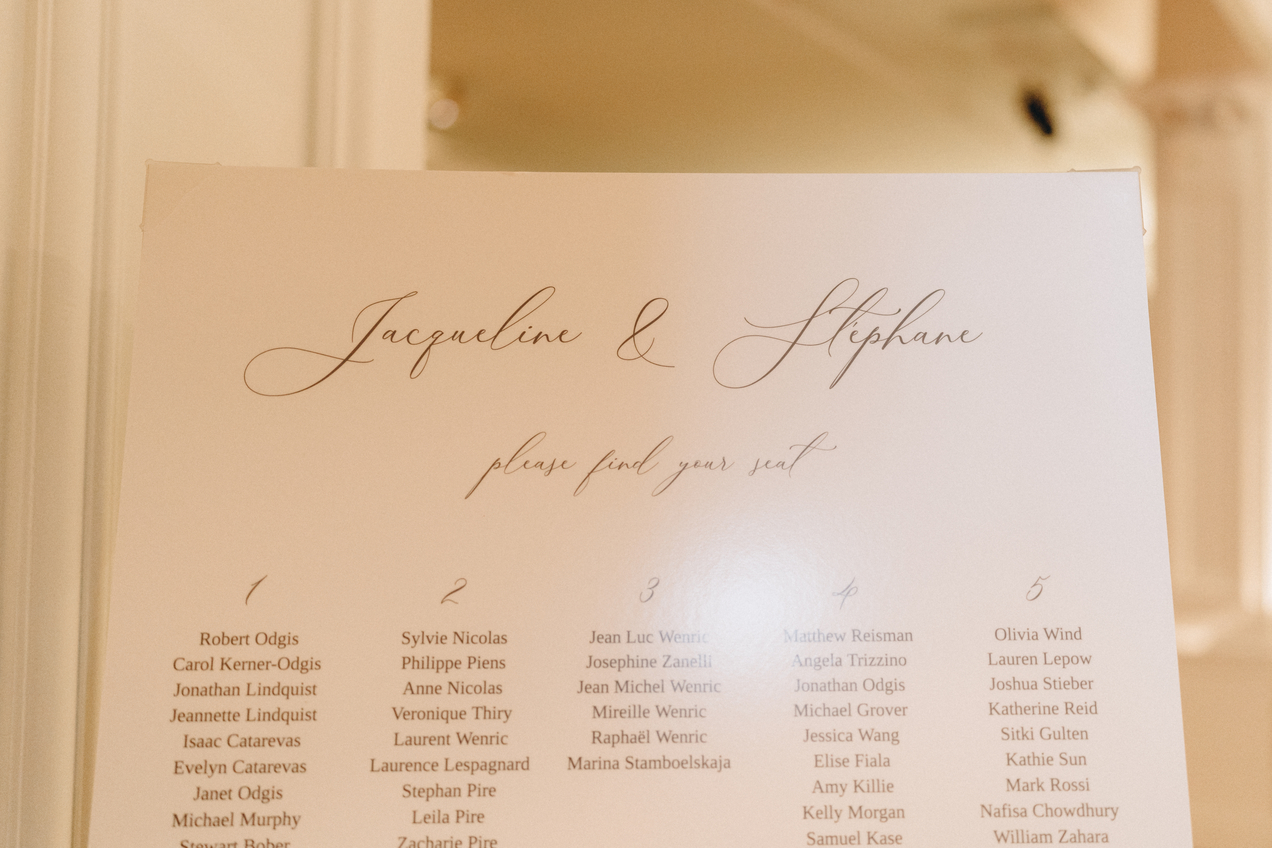 Jacqueline & Stéphane
please find your seat
1
Robert Odgis
Carol Kerner-Odgis
Jonathan Lindquist
Jeannette Lindquist
Isaac Catarevas
Evelyn Catarevas
Janet Odgis
Michael Murphy
Stewart Bober
2
Sylvie Nicolas
Philippe Piens
Anne Nicolas
Veronique Thiry
Laurent Wenric
Laurence Lespagnard
Stephan Pire
Leila Pire
Zacharie Pire
3
Jean Luc Wenric
Josephine Zanelli
Jean Michel Wenric
Mireille Wenric
Raphaël Wenric
Marina Stamboelskaja
4
Matthew Reisman
Angela Trizzino
Jonathan Odgis
Michael Grover
Jessica Wang
Elise Fiala
Amy Killie
Kelly Morgan
Samuel Kase
5
Olivia Wind
Lauren Lepow
Joshua Stieber
Katherine Reid
Sitki Gulten
Kathie Sun
Mark Rossi
Nafisa Chowdhury
William Zahara